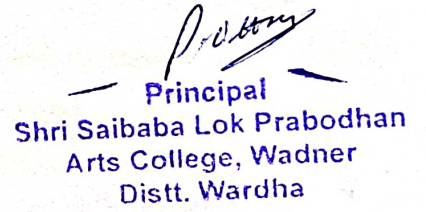 Principal
Shri Saibaba Lok Prabodhan
Arts College, Wadner
Distt. Wardha